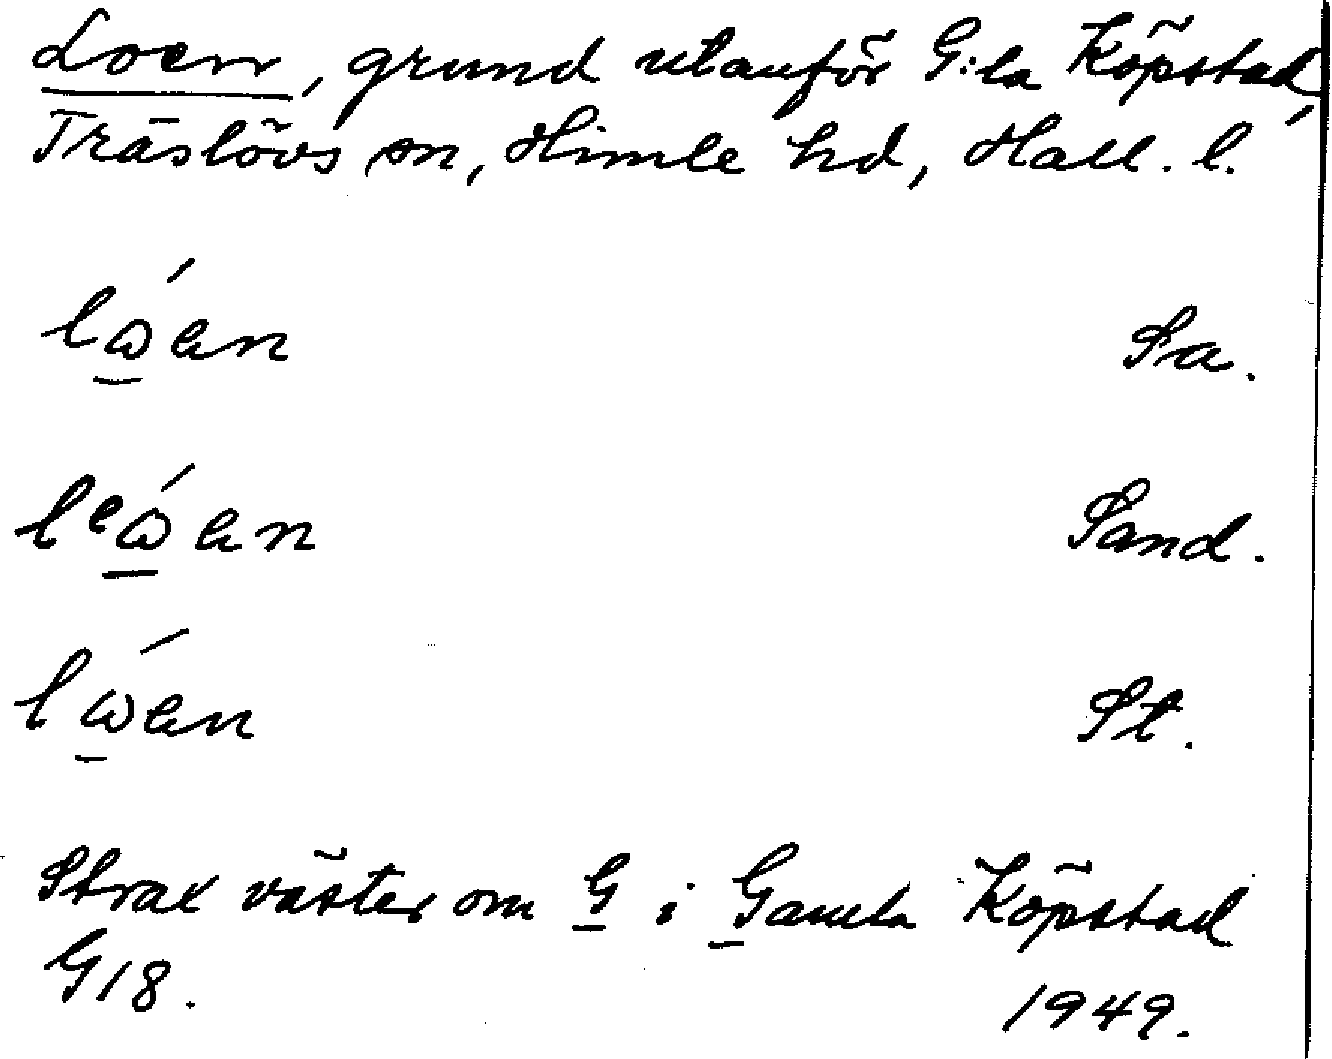 Loen, grund utanför G:la Köpstad,
Träslövs sn, Himle hd, Hall. l.
lώen Sa.
lᵉώen Sand.
lώen St.
Strax väster om G i Gamla Köpstad
G18. 1949.